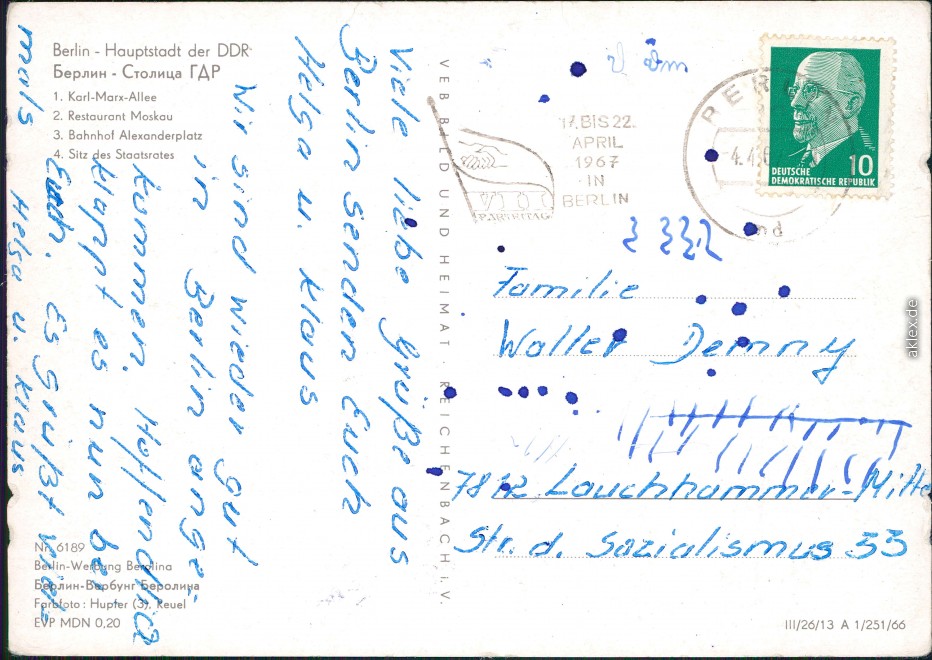 Berlin - Hauptstadt der DDR
Берлин - Столица ГДР
1. Karl-Marx-Allee
2. Restaurant Moskau
3. Bahnhof Alexanderplatz
4. Sitz des Staatsrates
Viele liebe Grüße aus
Berlin senden Euch
Helga u. Klaus
Wir sind wieder gut
in Berlin ange-
kommen. Hoffendlich
klappt es nun bei
Euch. Es grüßt viel-
mals
Helga u. Klaus
Nr. 6189
Berlin-Werbung Berolina
Берлин-Вербунг Беролина
Farbfoto: Hupfer (3), Reuel
EVP MDN 0,20
VEB BILD UND HEIMAT REICHENBACH i. V.
17. BIS 22.
APRIL
1967
IN
BERLIN
VII.
PARTEITAG
BER
-4.4.6
10
DEUTSCHE
DEMOKRATISCHE REPUBLIK
Familie
Walter Demny
7812 Lauchhammer-Mitte
Str. d. Sozialismus 33
III/26/13 A 1/251/66
aklex.de